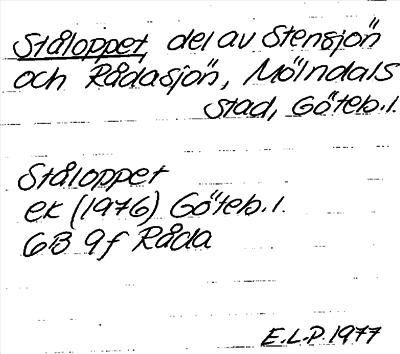 Ståloppet, del av Stensjön
och Rådasjön, Mölndals
stad, Göteb.l.
Ståloppet
ek (1976) Göteb.l.
6B 9f Råda
E.L.P. 1977